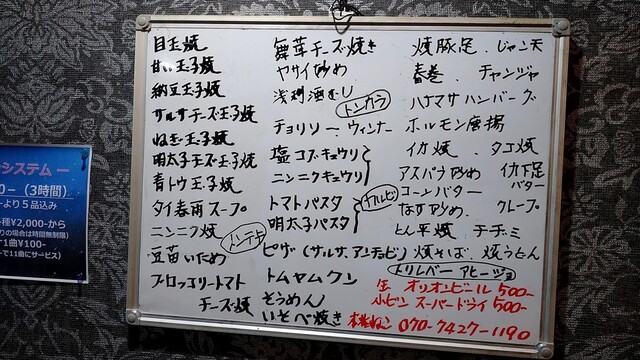 目玉焼
甘い玉子焼
納豆玉子焼
サルサチーズ玉子焼
ねぎ玉子焼
明太子チーズ玉子焼
青トウ玉子焼
タイ春雨スープ
ニンニク焼
豆苗いため
ブロッコリートマト
チーズ焼
舞茸チーズ焼き
ヤサイ炒め
浅利酒むし
トンカラ
チョリソー、ウィンナー
塩コブキュウリ
ニンニクキュウリ
トマトパスタ
明太子パスタ
カルビ
トンテキ
ピザ (サルサ、アンチョビ)
トムヤムクン
そうめん
いそべ焼き
焼豚足、じゃこ天
春巻 チャンジャ
ハナマサハンバーグ
ホルモン唐揚
イカ焼 タコ焼
アスパラ炒め イカ下足バター
コーンバター
なす炒め、クレープ
とん平焼 チヂミ
焼そば、焼うどん
トリレバーアヒージョ
缶 オリオンビール 500-
小ビン スーパードライ 500-
070-7427-1190
システム ー
0-(3時間)
ーより5品込み
種¥2,000-から
りの場合は時間無制限)
1曲¥100-
で11曲にサービス)